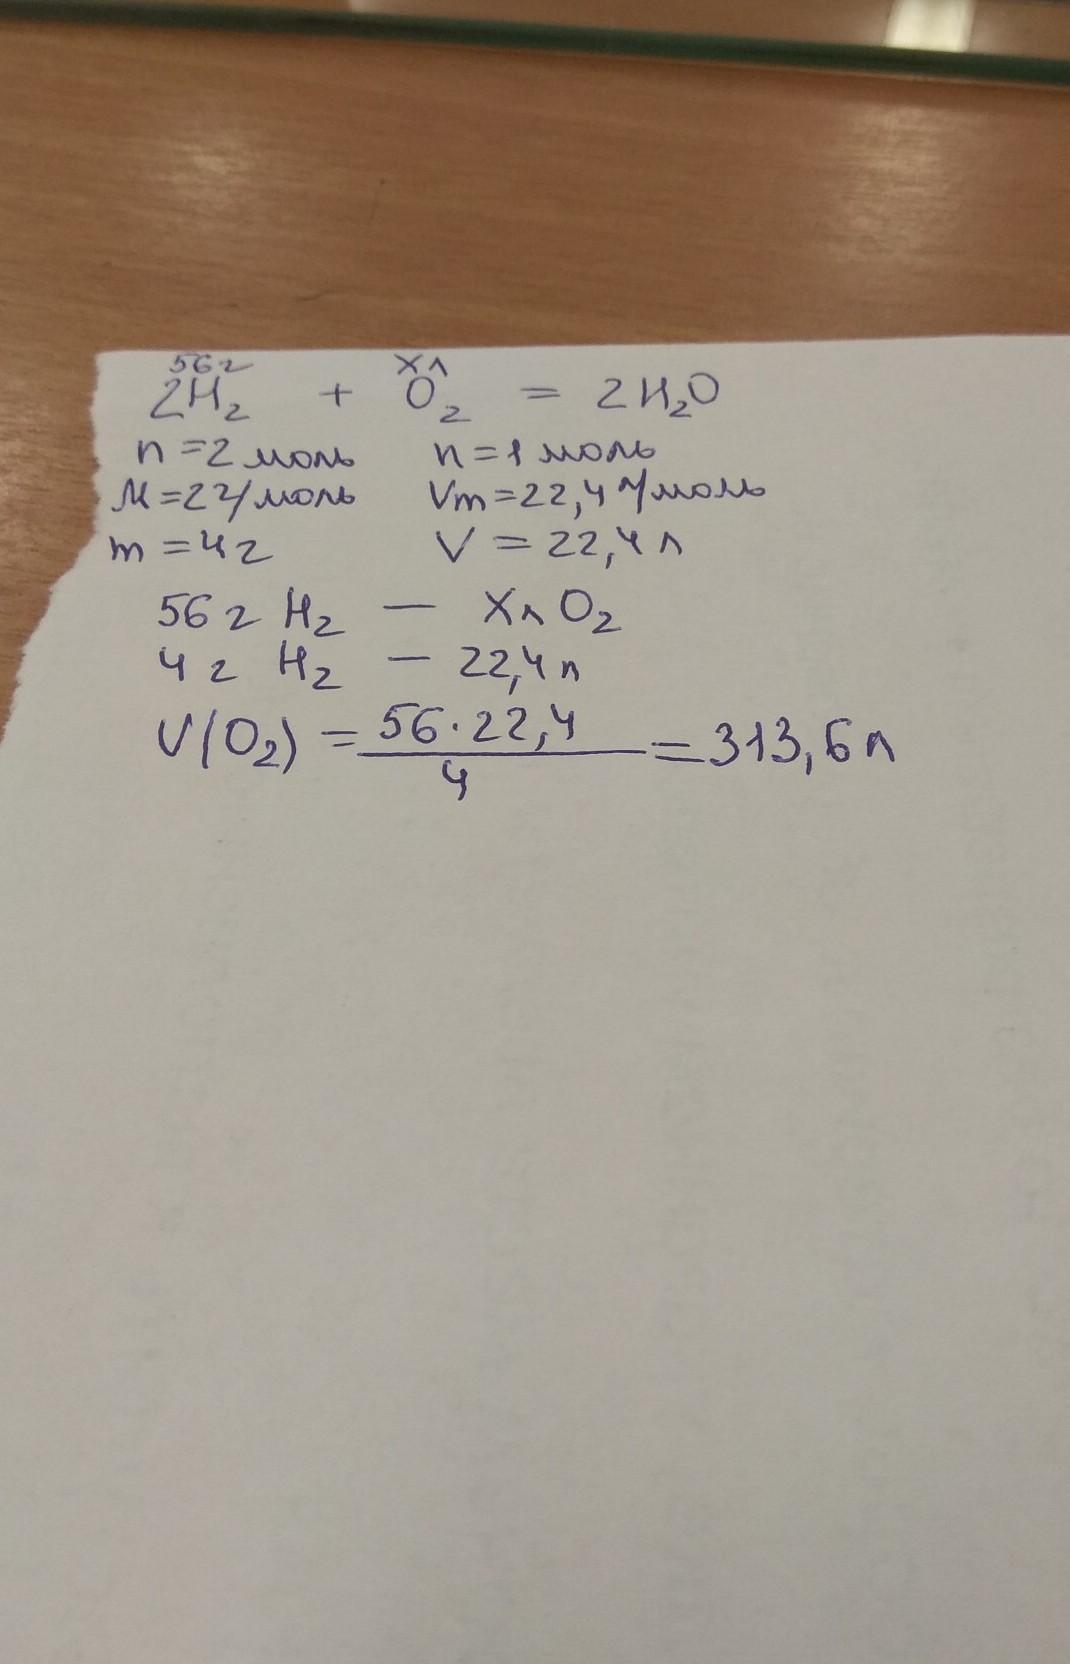 56г хл
2H₂ + O₂ = 2H₂O
n=2моль n=1моль
M=2г/моль Vm=22,4л/моль
m=4г V=22,4л
56г H₂ — XлO₂
4г H₂ — 22,4л
V(O₂) = 56·22,4 / 4 = 313,6л